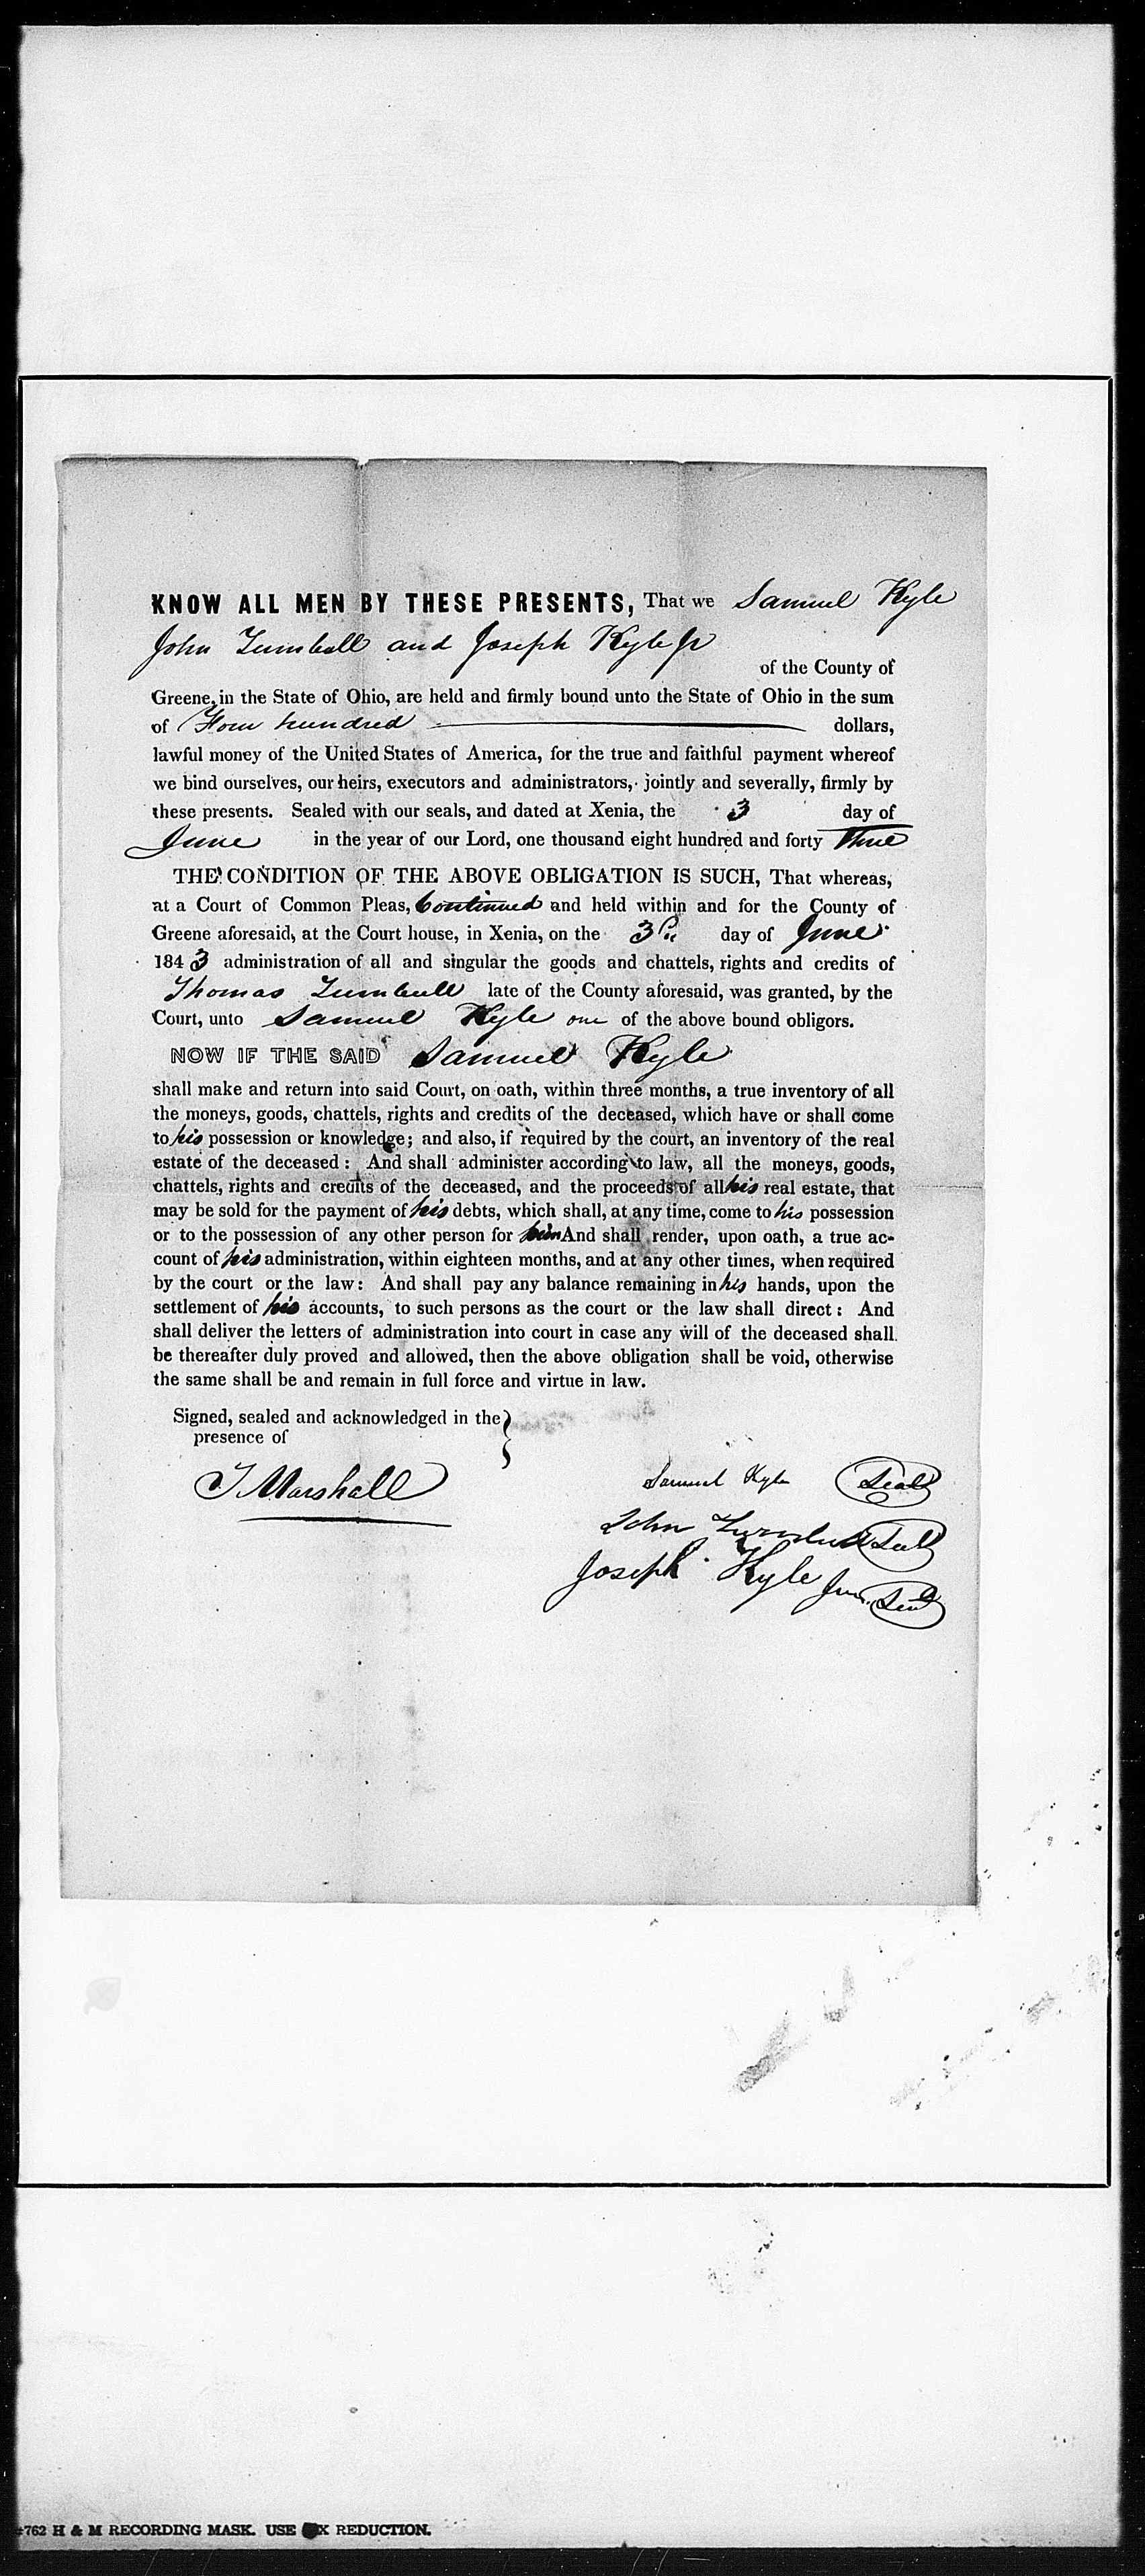 KNOW ALL MEN BY THESE PRESENTS, That we Samuel Kyle
John Turnbull and Joseph Kyle Jr
of the County of
Greene, in the State of Ohio, are held and firmly bound unto the State of Ohio in the sum
of Four hundred dollars,
lawful money of the United States of America, for the true and faithful payment whereof
we bind ourselves, our heirs, executors and administrators, jointly and severally, firmly by
these presents. Sealed with our seals, and dated at Xenia, the 3 day of
June in the year of our Lord, one thousand eight hundred and forty three
THE CONDITION OF THE ABOVE OBLIGATION IS SUCH, That whereas,
at a Court of Common Pleas, Continued and held within and for the County of
Greene aforesaid, at the Court house, in Xenia, on the 3 day of June
1843 administration of all and singular the goods and chattels, rights and credits of
Thomas Turnbull late of the County aforesaid, was granted, by the
Court, unto Samuel Kyle one of the above bound obligors.
NOW IF THE SAID Samuel Kyle
shall make and return into said Court, on oath, within three months, a true inventory of all
the moneys, goods, chattels, rights and credits of the deceased, which have or shall come
to his possession or knowledge; and also, if required by the court, an inventory of the real
estate of the deceased: And shall administer according to law, all the moneys, goods,
chattels, rights and credits of the deceased, and the proceeds of all his real estate, that
may be sold for the payment of his debts, which shall, at any time, come to his possession
or to the possession of any other person for him And shall render, upon oath, a true ac-
count of his administration, within eighteen months, and at any other times, when required
by the court or the law: And shall pay any balance remaining in his hands, upon the
settlement of his accounts, to such persons as the court or the law shall direct: And
shall deliver the letters of administration into court in case any will of the deceased shall
be thereafter duly proved and allowed, then the above obligation shall be void, otherwise
the same shall be and remain in full force and virtue in law.
Signed, sealed and acknowledged in the
presence of
T Marshall
Samuel Kyle Seal
John Turnbull Seal
Joseph Kyle Jun. Seal
762 H & M RECORDING MASK. USE X REDUCTION.